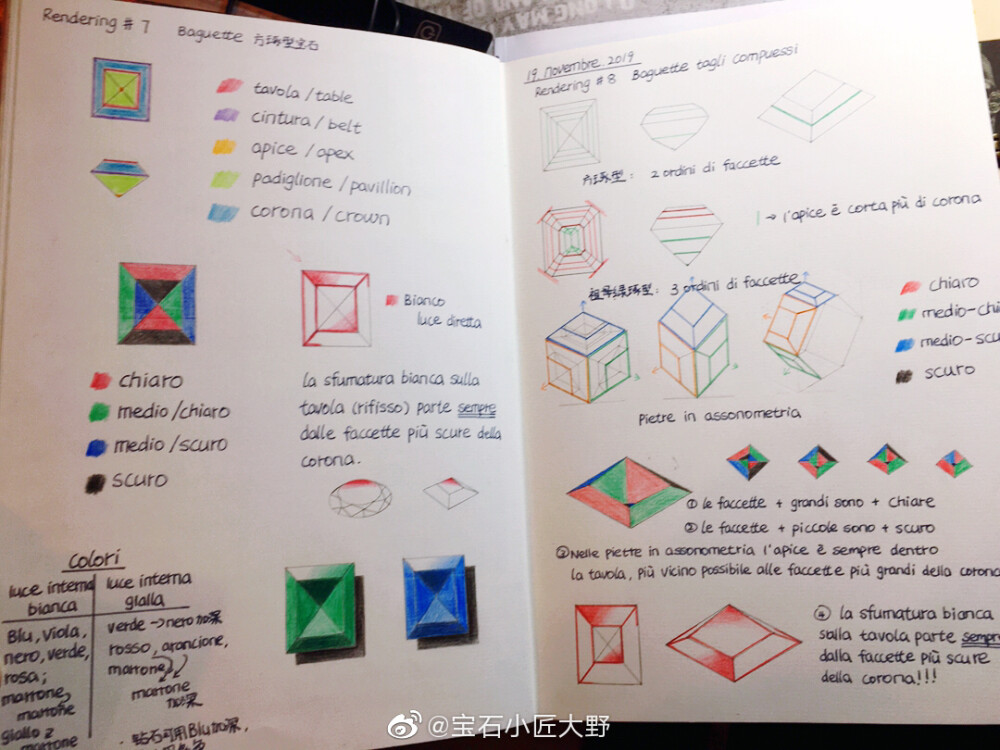 Rendering # 7
Baguette 方环型宝石
tavola / table
cintura / belt
apice / apex
padiglione / pavillion
corona / crown
Bianco
luce diretta
chiaro
medio / chiaro
medio / scuro
scuro
la sfumatura bianca sulla
tavola (rifisso) parte sempre
dalle faccette più scure della
corona.
colori
luce interna
bianca
luce interna
gialla
Blu, viola,
nero, verde,
rosa;
marrone
marrone
giallo 2
marrone
verde → nero 加深
rosso, arancione,
marrone
marrone
加深
. 钻石可用Blu加深,
19. novembre. 2019
Rendering # 8 Baguette tagli compuessi
方环型: 2 ordini di faccette
| → l'apice è corta più di corona
祖母绿环型: 3 ordini di faccette
chiaro
medio-chi
medio-scu
scuro
Pietre in assonometria
① le faccette + grandi sono + chiare
② le faccette + piccole sono + scuro
③ Nelle pietre in assonometria l'apice è sempre dentro
la tavola, più vicino possibile alle faccette più grandi della corona
④ la sfumatura bianca
sulla tavola parte sempre
dalla faccette più scure
della corona!!!
@宝石小匠大野